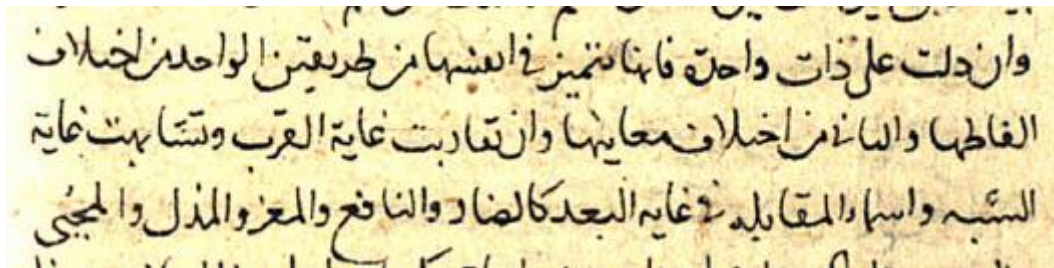 وان دلت على ذات واحدة فانها تتميز في انفسها من طريقين الواحد من اختلاف
الفاظها والثاني من اختلاف معانيها وان تقاربت غاية القرب وتشابهت غاية
الشبه واسماء المقابلة في غاية البعد كالضار والنافع والمعز والمذل والمحيي